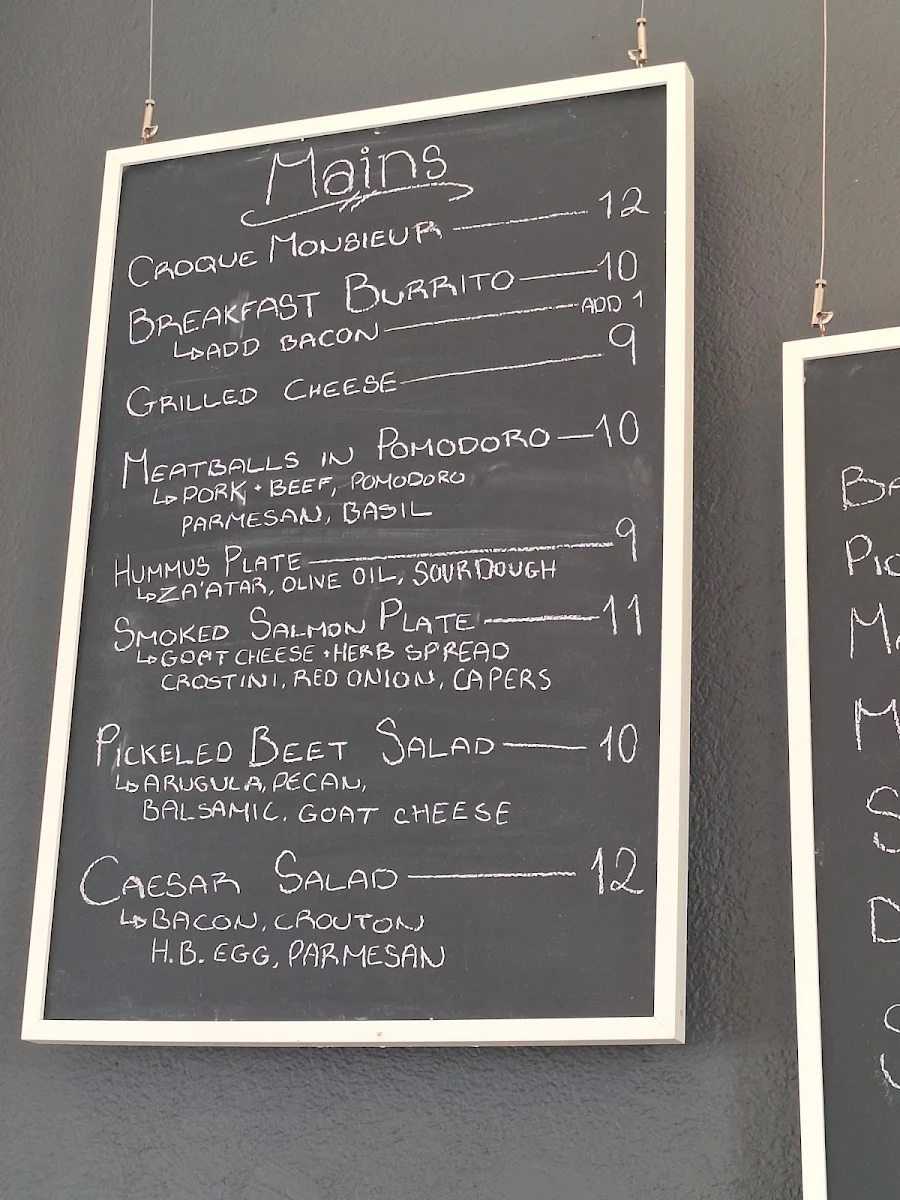 Mains
CROQUE MONSIEUR 12
BREAKFAST BURRITO 10
↳ADD BACON ADD 1
GRILLED CHEESE 9
MEATBALLS IN POMODORO 10
↳PORK + BEEF, POMODORO
PARMESAN, BASIL
HUMMUS PLATE 9
↳ZA'ATAR, OLIVE OIL, SOURDOUGH
SMOKED SALMON PLATE 11
↳GOAT CHEESE + HERB SPREAD
CROSTINI, RED ONION, CAPERS
PICKELED BEET SALAD 10
↳ARUGULA, PECAN,
BALSAMIC. GOAT CHEESE
CAESAR SALAD 12
↳BACON, CROUTON
H.B. EGG, PARMESAN